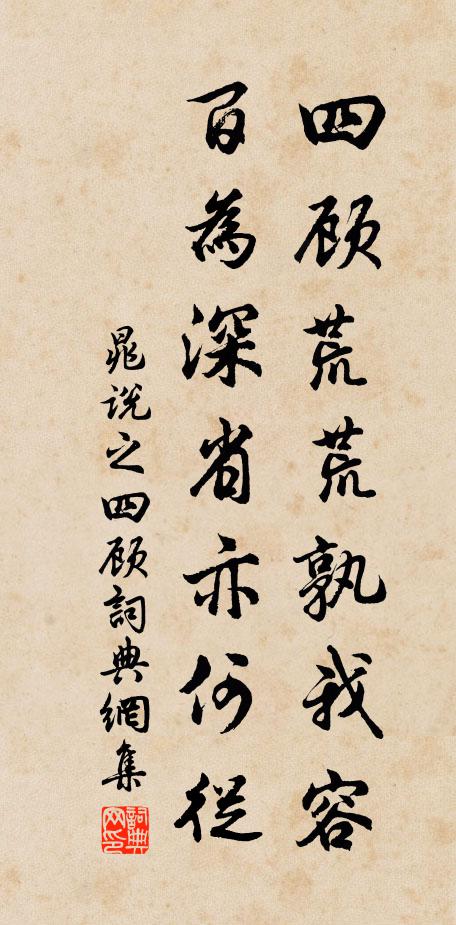 四顾荒荒孰我容
百為深省亦何從
晁说之四顾詞典網集
詞典网印